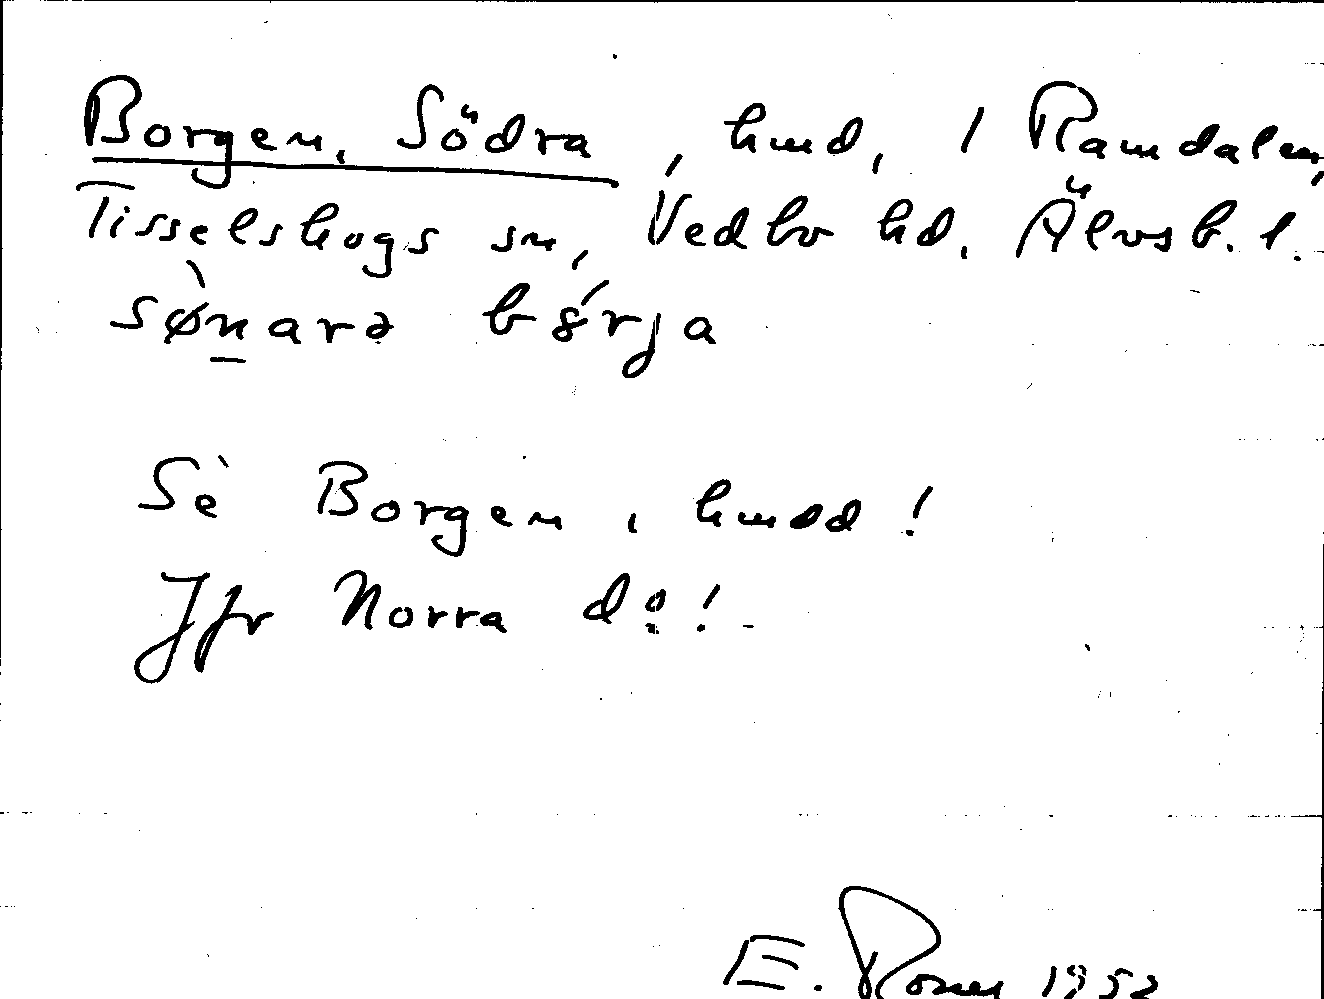 Borgen, Södra, hmd, 1 Ramdalen,
Tisselskogs sn, Vedbo hd. Älvsb. l.
sø̀narə bǿrja
Se Borgen, hmdd!
Jfr Norra d:o!
E. 1952